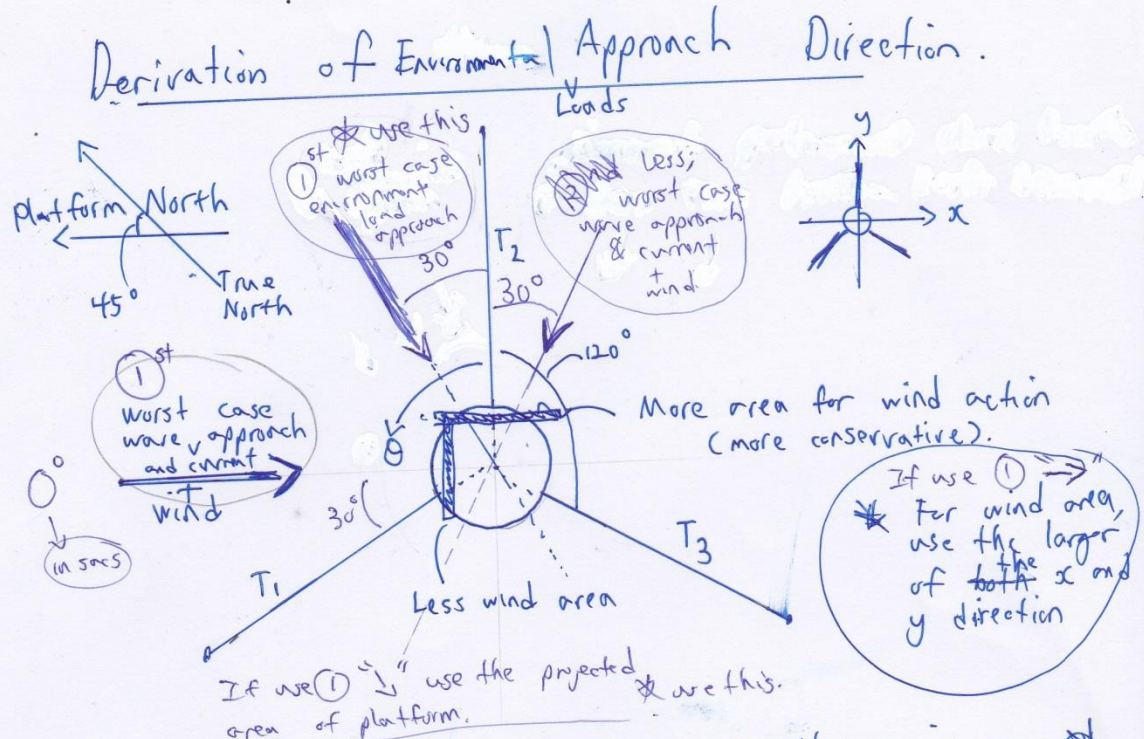 Derivation of Environmental Approach Direction.
Loads
Platform North
45°
True
North
* use this
1st worst case
environment
load
approach
30°
T2
30°
Less,
worst case
wave approach
& current
+
wind
y
x
120°
1st
worst case
wave approach
and current
+
wind
0°
in sacs
θ
30°
More area for wind action
(more conservative).
T1
T3
Less wind area
If use 1 "→"
* For wind area,
use the larger
of both the x and
y direction
If use 1 "↘" use the projected * use this.
area of platform.